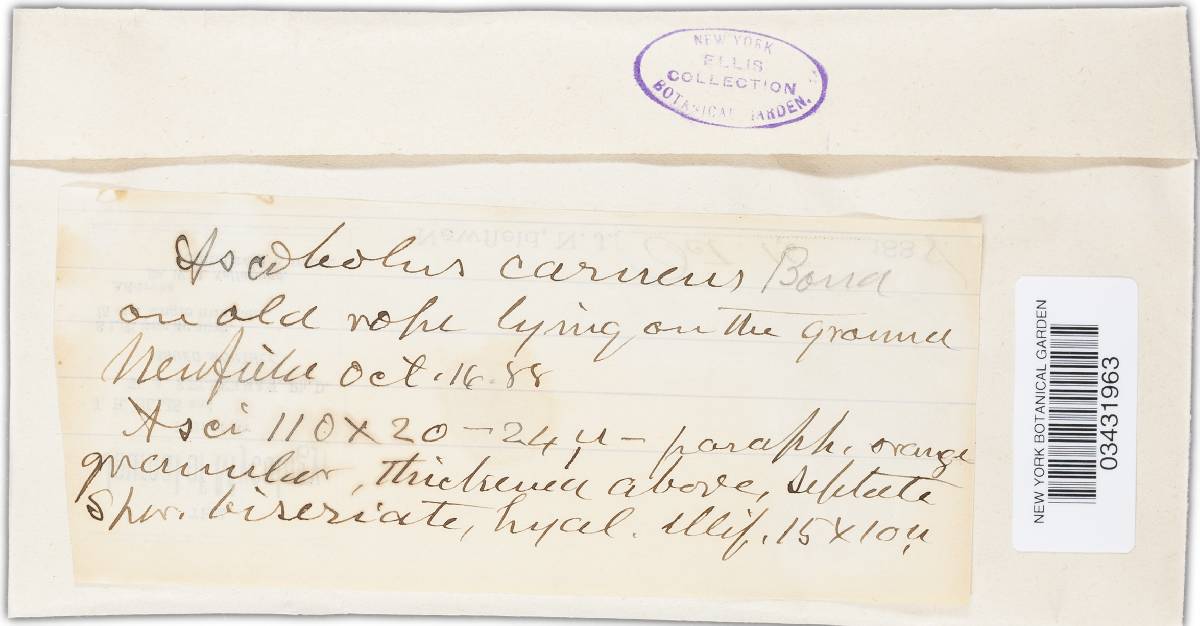 NEW YORK
ELLIS
COLLECTION
BOTANICAL GARDEN.
Newfield, N. J., Oct 188
Ascobolus carneus Boud
on old rope lying on the ground
Newfield Oct. 16. 88
Asci 110 x 20-24 µ - paraph. orange
granular, thickened above, septate
Spor. biseriate, hyal. ellip. 15 x 10 µ
NEW YORK BOTANICAL GARDEN
03431963